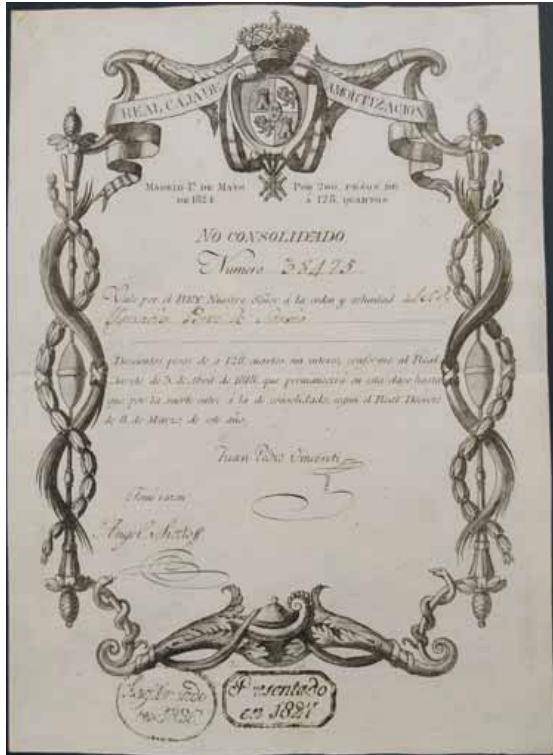 REAL CAJA DE AMORTIZACION
MADRID 1º. DE MAYO DE 1824
POR 200. PESOS DE á 128. QUARTOS
NO CONSOLIDADO
Numero 38475
Vale por el REY Nuestro Señor á la orden y voluntad de
Doscientos pesos de á 128 cuartos sin interes, conforme al Real
decreto de 3. de Abril de 1818, que permanecerá en esta clase hasta
que por la suerte entre á la de consolidado, segun el Real Decreto
de 8. de Marzo de este año.
Juan Pedro Vincenti
Tome razon
Angel
Presentado
en 1827